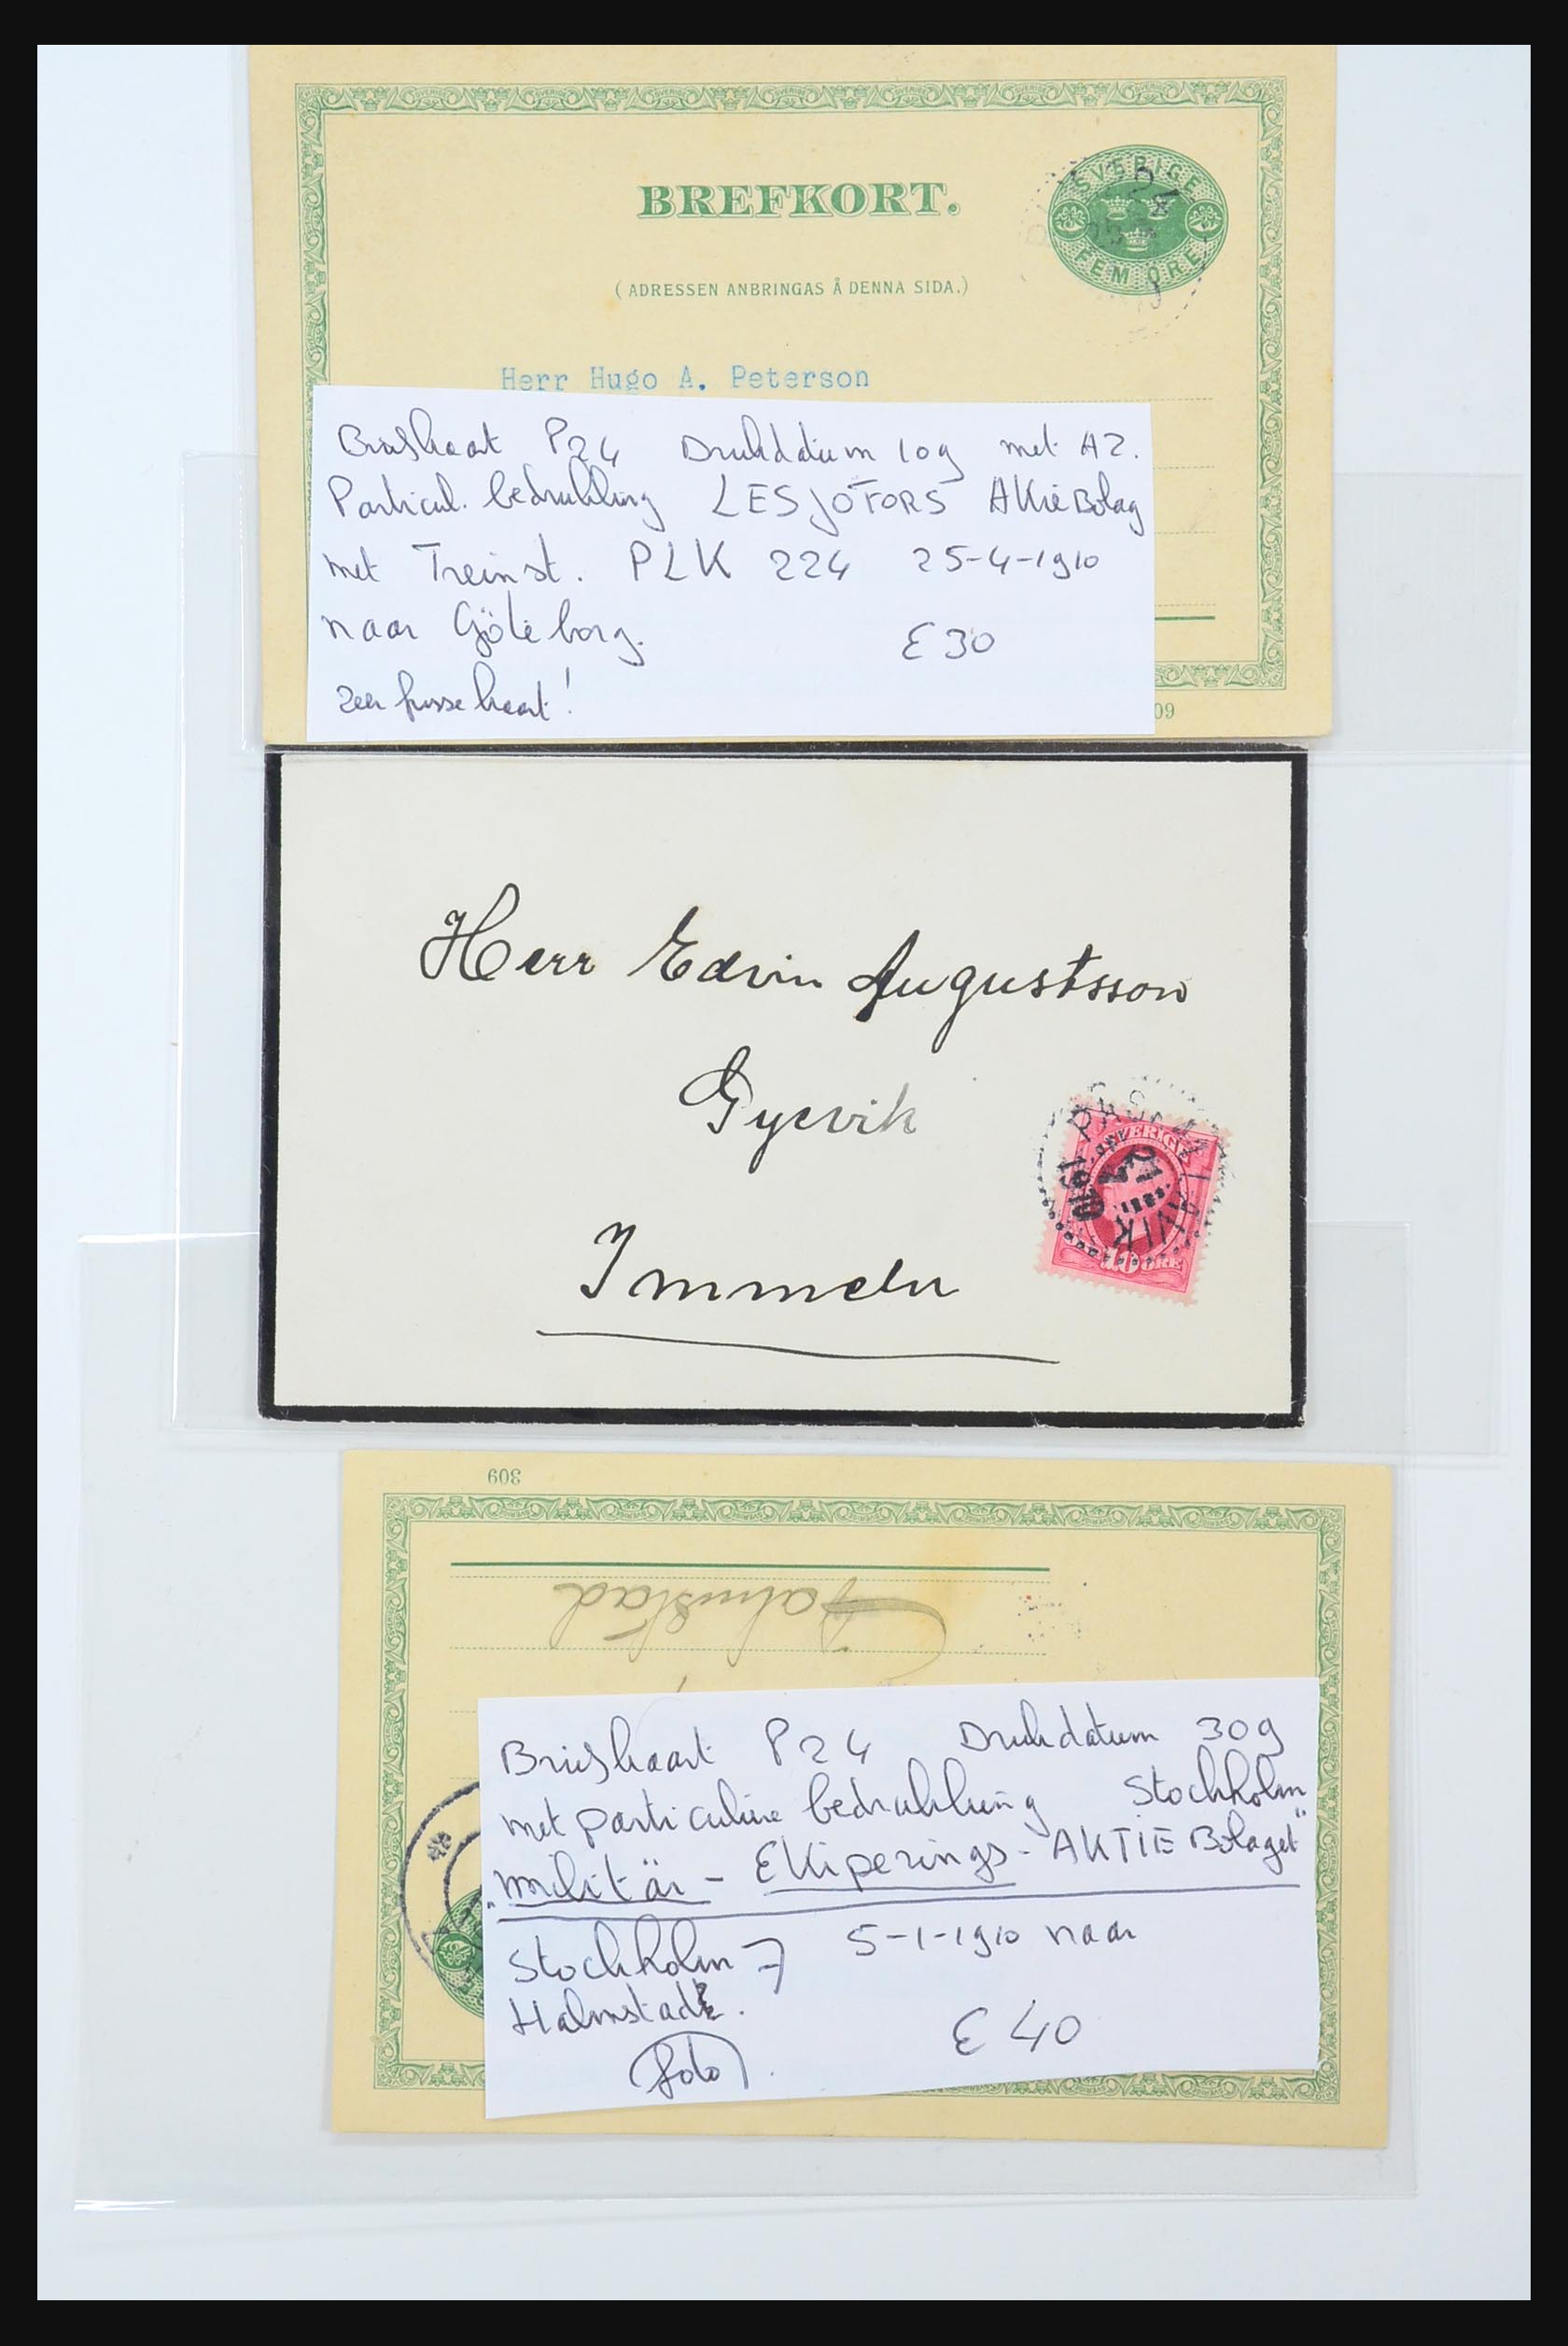 BREFKORT.
SVERIGE
FEM ÖRE
(ADRESSEN ANBRINGAS Å DENNA SIDA.)
Herr Hugo A. Peterson
Briefkaart P24 Drukdatum 109 met AZ.
Particul. bedrukking LESJÖFORS AKtieBolag
met Treinst. PLK 224 25-4-1910
naar Göteborg.
£ 30
zeer frisse kaart!
09
Herr Edvin Augustsson
Gyevik
Immeln
SVERIGE
10 ÖRE
1910
VIK
309
Halmstad
Briefkaart P24 Drukdatum 309
met particuliere bedrukking Stockholm
"Militär - EKiperings - AKTIEBolaget"
Stockholm 7 5-1-1910 naar
Halmstad.
£ 40
foto